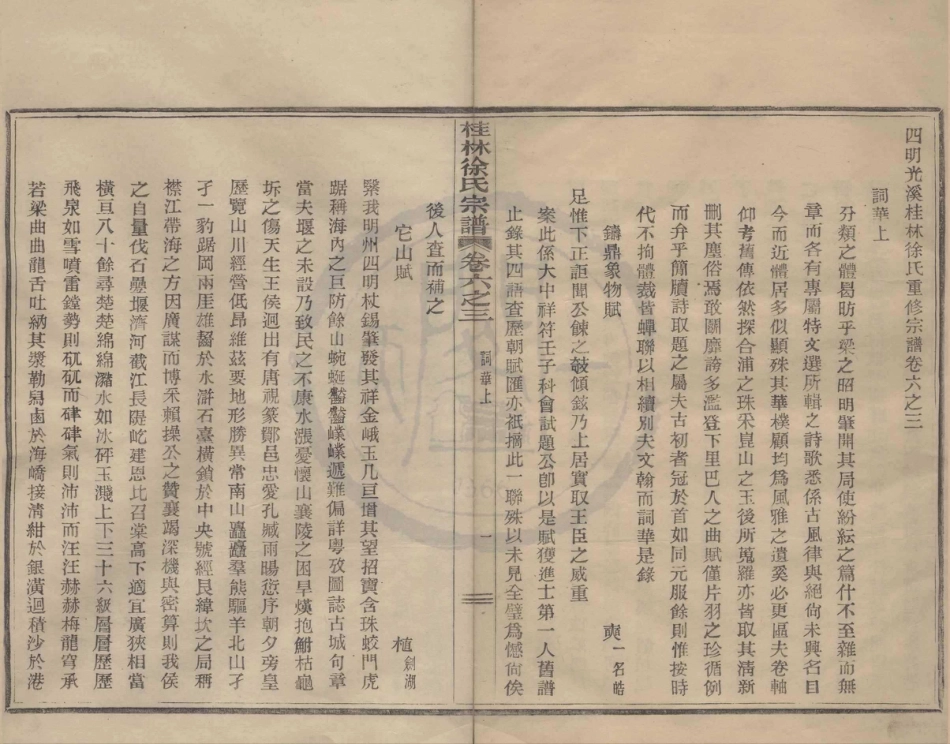 四明光溪桂林徐氏重修宗譜卷六之三
詞華上
分類之體曷昉乎梁之昭明肇開其局使紛紜之篇什不至雜而無
章而各有專屬特文選所輯之詩歌悉係古風律與絕尙未興名目
今而近體居多似顯殊其華樸顧均爲風雅之遺奚必更區夫卷軸
仰考舊傳依然探合浦之珠釆崑山之玉後所蒐羅亦皆取其清新
刪其塵俗焉敢闘靡誇多濫登下里巴人之曲賦僅片羽之珍循例
而弁乎簡牘詩取題之屬夫古初者冠於首如同元服餘則惟按時
代不拘體裁皆蟬聯以相續別夫文翰而詞華是錄
鑄鼎象物賦
奭一名晧
足惟下正詎聞公餗之欹傾鉉乃上居實取王臣之威重
案此係大中祥符壬子科會試題公卽以是賦獲進士第一人舊譜
止錄其四語查歷朝賦匯亦祇摘此一聯殊以未見全璧爲憾尙俟
桂林徐氏宗譜 卷六之三 詞華上 一
後人查而補之
它山賦
植 劍湖
繄我明州四明杖錫肇發其祥金峨玉几亘增其望招寶含珠蛟門虎
踞稱海內之巨防餘山蜿蜒嶨嶨嶫嶫遞難偏詳粵攷圖誌古城句章
當夫堰之未設乃致民之不康水漲憂懷山襄陵之困旱熯抱鮒枯龜
坼之傷天生王侯迥出有唐視篆鄮邑忠愛孔臧雨暘愆序朝夕旁皇
歷覽山川經營低昂維茲要地形勝異常南山矗矗羣熊驅羊北山孑
孑一豹踞岡兩厓雄齧於水滸石臺橫鎖於中央號經艮緯坎之局稱
襟江帶海之方因廣謀而博釆賴操公之贊襄竭深機與密算則我侯
之自量伐石壘堰濟河截江長隄屹建恩比召棠高下適宜廣狹相當
橫亘八十餘尋楚楚綿綿瀦水如冰砰玉濺上下三十六級層層歷歷
飛泉如雪噴雷鏜勢則矹矹而硉硉氣則沛沛而汪汪赫赫梅龍穹承
若梁曲曲龍舌吐納其漿勒舄鹵於海嶠接清紺於銀潢迴積沙於港